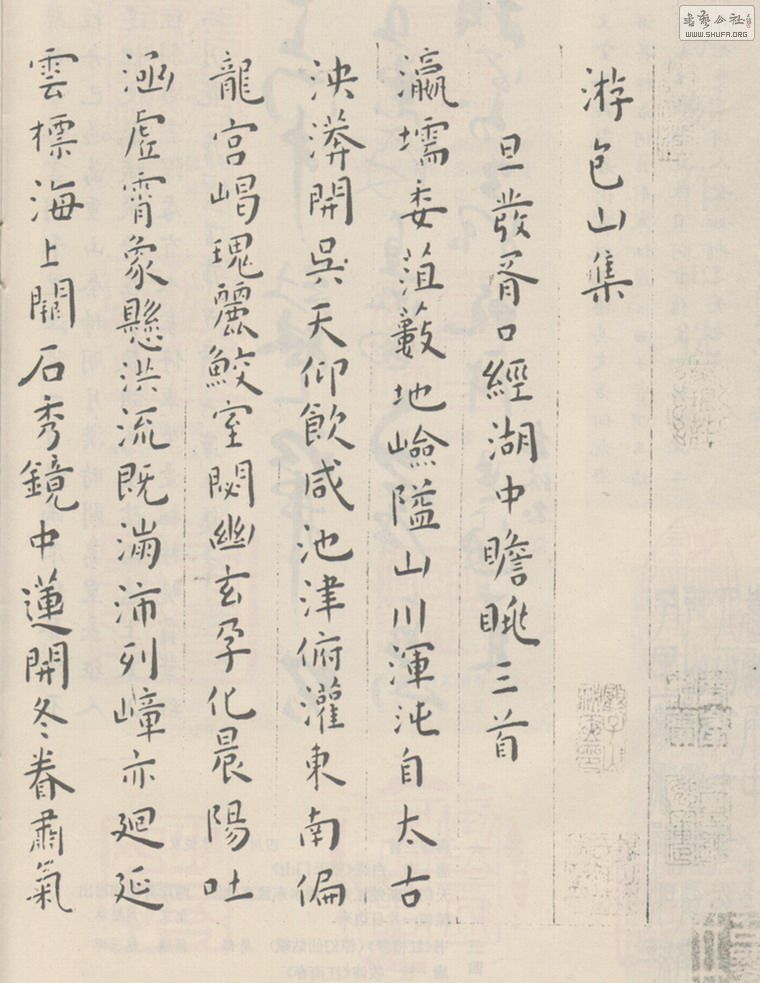 游包山集
旦發胥口經湖中瞻眺三首
瀛壖委菹藪地嶮隘山川渾沌自太古
泱漭開吳天仰飲咸池津俯灌東南偏
龍宮嵑瑰麗鮫室閟幽玄孕化晨陽吐
涵虛霄象懸洪流既滿沛列嶂亦廻延
雲標海上闕石秀鏡中蓮開冬眷肅氣
書藝公社
WWW.SHUFA.ORG